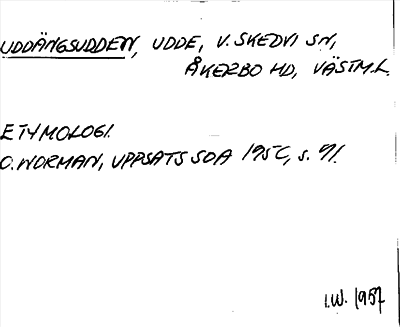 UDDÄNGSUDDEN, UDDE, V. SKEDVI SN,
ÅKERBO HD, VÄSTM.L.
ETYMOLOGI.
O. NORMAN, UPPSATS SOA 1956, s. 91.
I.W. 1957